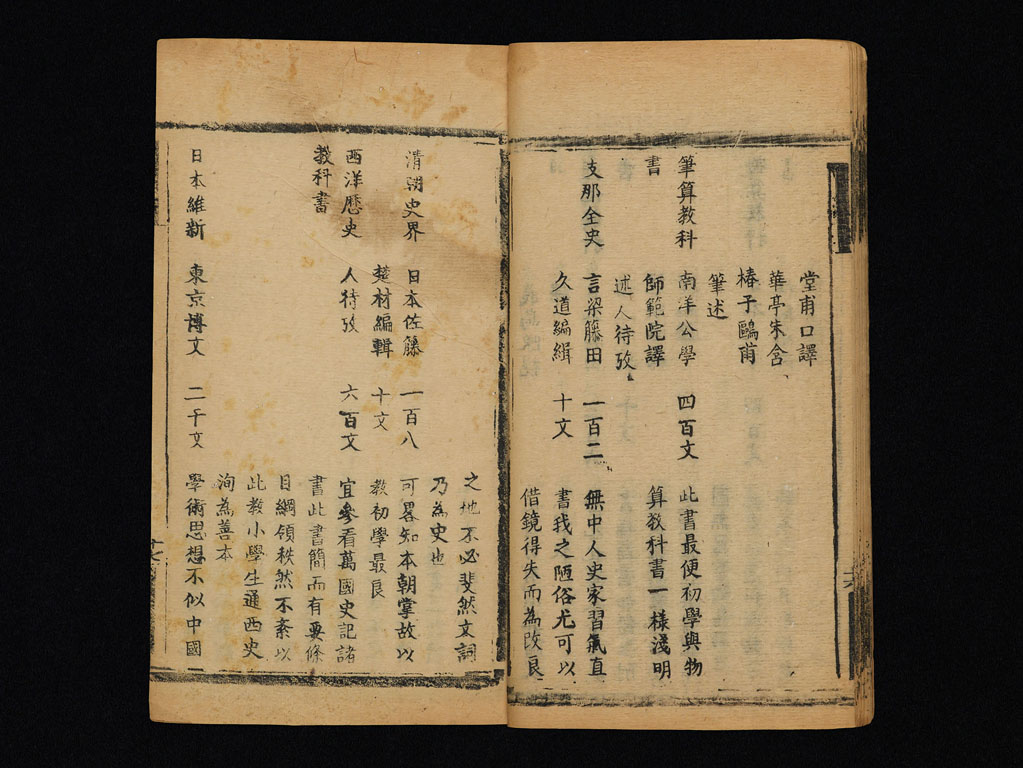 堂甫口譯
華亭朱含
椿子鷗甫
筆述
筆算教科 南洋公學 四百文 此書最便初學與物
書 師範院譯 算教科書一樣淺明
述人待攷
支那全史 言梁籐田 一百二 無中人史家習氣直
久道編緝 十文 書我之陋俗尤可以
借鏡得失而為改良
之地不必斐然文詞
乃為史也
清朝史界 日本佐籐 一百八 可畧知本朝掌故以
楚材編輯 十文 教初學最良
西洋歷史 人待攷 六百文 宜參看萬國史記諸
教科書 書此書簡而有要條
目綱領秩然不紊以
此教小學生通西史
洵為善本
日本維新 東京博文 二千文 學術思想不似中國